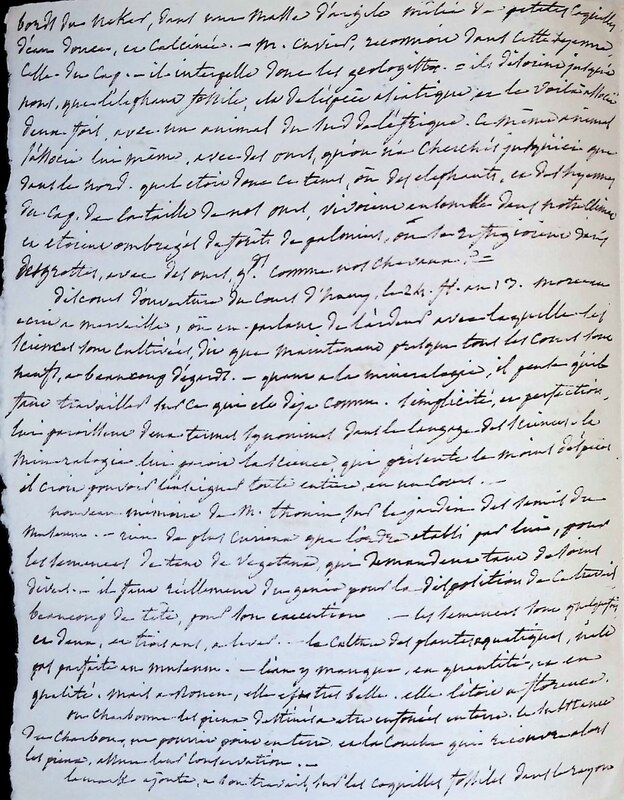 bords du Neker, dans une masse d'argile mêlée de petites coquilles
d'eau douce, et calcinée. - M. Cuvier, reconnoit dans cette hyenne
celle du Cap. - il interpelle donc les geologistes. = ils disoient jusqu'à
nous, que l'elephant fossile, est de l'espèce asiatique et le voilà associé
deux fois, avec un animal du Sud de l'afrique. Ce même animal
s'associe lui même, avec des ours, qu'on n'a cherchés jusqu'ici que
dans le nord. quel etoit donc ce tems, où des elephants, et des hyennes
du Cap, de la taille de nos ours, vivoient ensemble dans notre climat
et etoient ombragés de forêts de palmiers, où se refugioient dans
des grottes, avec des ours, gds. comme nos chevaux ? =
discours d'ouverture du Cours d'hauy, le 24. fl. an 13. morceau
ecrit a merveille, où en parlant de l'ardeur avec laquelle les
sciences sont cultivées, dit que maintenant presque tous les cours sont
neufs, a beaucoup d'égards. - quant a la mineralogie, il pense qu'il
faut travailler sur ce qui est deja connu. Simplicité, et perfection,
lui paroissent deux termes synonimes dans le langage des sciences. la
mineralogie lui paroit la science, qui présente le moins d'espèces
il croit pouvoir l'enseigner toute entière, en un cours. -
nouveau mémoire de M. thouin, sur le jardin des semis du
museum. - rien de plus curieux que l'ordre etabli par lui, pour
les semences de tant de vegetaux, qui demandent tant de soins
divers. - il faut réellement du genie pour la disposition de ce travail
beaucoup de tête, pour son execution - les semences sont quelquefois
en deux, en trois ans, a lever. - la culture des plantes aquatiques, n'est
pas parfaite au museum. - l'eau y manque, en quantité, et en
qualité, mais a Rouen, elle est très belle. elle l'etoit a florence.
on charbonne les pieux destinés a etre enfoncés en terre. la substance
du charbon, ne pourrit point en terre et la couche qui recouvre alors
les pieux, assure leur conservation. -
lamarck ajoute, a son travail, sur les coquilles fossiles dans le rayon